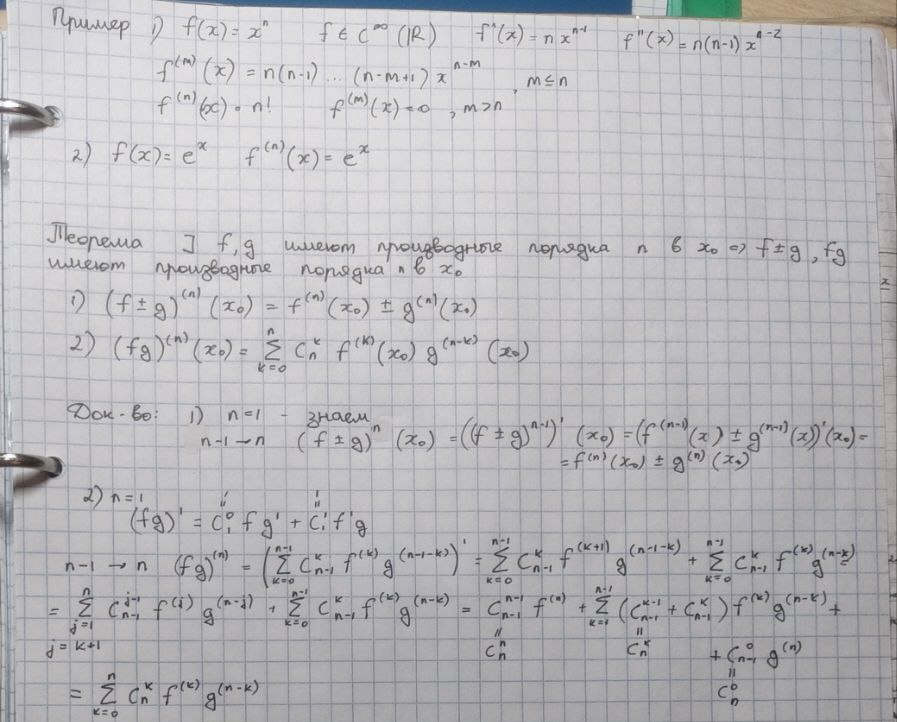 Пример 1) f(x) = xⁿ f ∈ C^∞(ℝ) f'(x) = n x^{n-1} f''(x) = n(n-1) x^{n-2}
f^{(m)}(x) = n(n-1) ... (n-m+1) x^{n-m}, m ≤ n
f^{(n)}(x) = n! f^{(m)}(x) = 0, m > n
2) f(x) = e^x f^{(n)}(x) = e^x
Теорема ] f, g имеют производные порядка n в x₀ => f ± g, fg
имеют производные порядка n в x₀
1) (f ± g)^{(n)}(x₀) = f^{(n)}(x₀) ± g^{(n)}(x₀)
2) (fg)^{(n)}(x₀) = \sum_{k=0}^{n} C_n^k f^{(k)}(x₀) g^{(n-k)}(x₀)
Док-во: 1) n = 1 - знаем
n-1 → n (f ± g)^n (x₀) = ((f ± g)^{n-1})' (x₀) = (f^{(n-1)}(x) ± g^{(n-1)}(x))'(x₀) =
= f^{(n)}(x₀) ± g^{(n)}(x₀)
2) n = 1
1 1
" "
(fg)' = C_1^0 f g' + C_1^1 f'g
n-1 → n (fg)^{(n)} = (\sum_{k=0}^{n-1} C_{n-1}^k f^{(k)} g^{(n-1-k)})' = \sum_{k=0}^{n-1} C_{n-1}^k f^{(k+1)} g^{(n-1-k)} + \sum_{k=0}^{n-1} C_{n-1}^k f^{(k)} g^{(n-k)} =
= \sum_{j=1}^{n} C_{n-1}^{j-1} f^{(j)} g^{(n-j)} + \sum_{k=0}^{n-1} C_{n-1}^k f^{(k)} g^{(n-k)} = C_{n-1}^{n-1} f^{(n)} + \sum_{k=1}^{n-1} (C_{n-1}^{k-1} + C_{n-1}^k) f^{(k)} g^{(n-k)} +
j = k+1 " C_n^n " C_n^k + C_{n-1}^0 g^{(n)}
" C_n^0
= \sum_{k=0}^{n} C_n^k f^{(k)} g^{(n-k)}